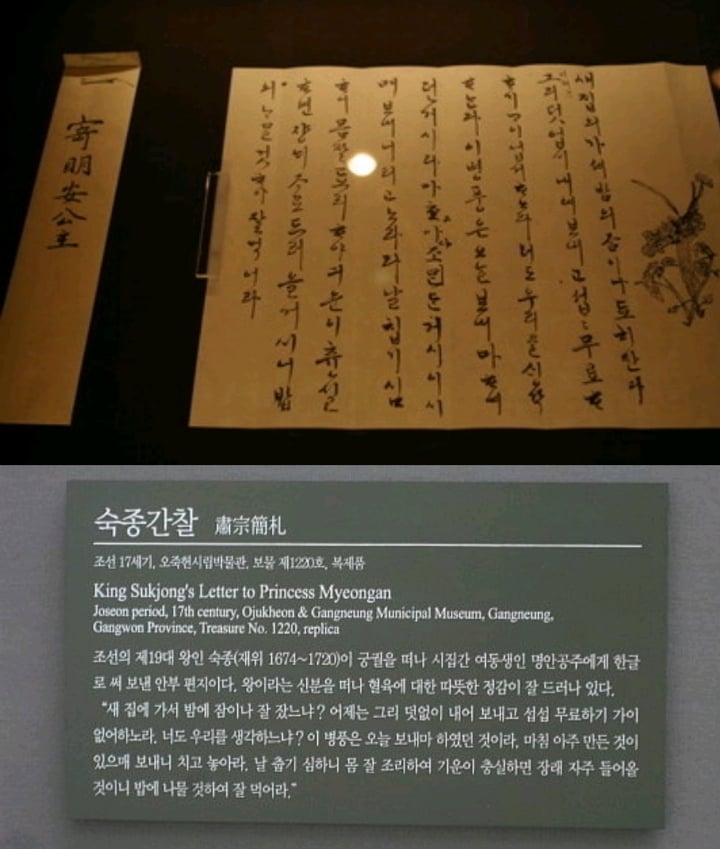 寄明安公主
새 집의 가셔 밤의 줌이나 됴히 잔다
그리 덧업시 내여 보내고 섭섭 무료
너도 우리를
이 병풍은 오늘 보내마 ᄒᆞ여
던 거시라 마초아 든 거시 이시
매 보내니 티고 노하라 날 칩기 심
ᄒᆞ니 몸 잘 됴리ᄒᆞ야 긔운이 츙실
ᄒᆞ면 쟝ᄂᆡ ᄌᆞ로 드러올 거시니 밥
잘 먹어라
숙종간찰 肅宗簡札
조선 17세기, 오죽헌시립박물관, 보물 제1220호, 복제품
King Sukjong's Letter to Princess Myeongan
Joseon period, 17th century, Ojukheon & Gangneung Municipal Museum, Gangneung,
Gangwon Province, Treasure No. 1220, replica
조선의 제19대 왕인 숙종(재위 1674~1720)이 궁궐을 떠나 시집간 여동생인 명안공주에게 한글
로 써 보낸 안부 편지이다. 왕이라는 신분을 떠나 혈육에 대한 따뜻한 정감이 잘 드러나 있다.
"새 집에 가서 밤에 잠이나 잘 잤느냐? 어제는 그리 덧없이 내어 보내고 섭섭 무료하기 가이
없어하노라. 너도 우리를 생각하느냐? 이 병풍은 오늘 보내마 하였던 것이라. 마침 아주 만든 것이
있으매 보내니 치고 놓아라. 날 춥기 심하니 몸 잘 조리하여 기운이 충실하면 장래 자주 들어올
것이니 밥에 나물 것하여 잘 먹어라."